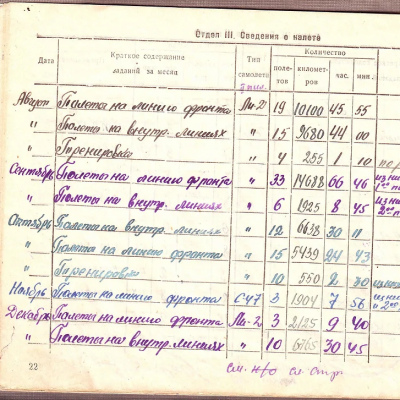 Отдел III. Сведения о налете
Дата Краткое содержание заданий за месяц Тип самолета Количество полетов километр. час. мин.
Август Полеты на линию фронта Ли-2 19 10100 45 55
" Полеты на внутр. линиях " 15 9680 44 00
" Тренировка " 4 255 1 10
Сентябрь Полеты на линию фронта " 33 14688 66 46
" Полеты на внутр. линиях " 6 1925 8 45
Октябрь Полеты на внутр. линиях " 12 6638 30 11
" Полеты на линию фронта " 15 5439 24 43
" Тренировка " 10 550 2 30
Ноябрь Полеты на линию фронта С-47 3 1904 7 56
Декабрь Полеты на линию фронта Ли-2 3 2125 9 40
" Полеты на внутр. линиях " 10 6765 30 45
22
см. н/о см. стр.